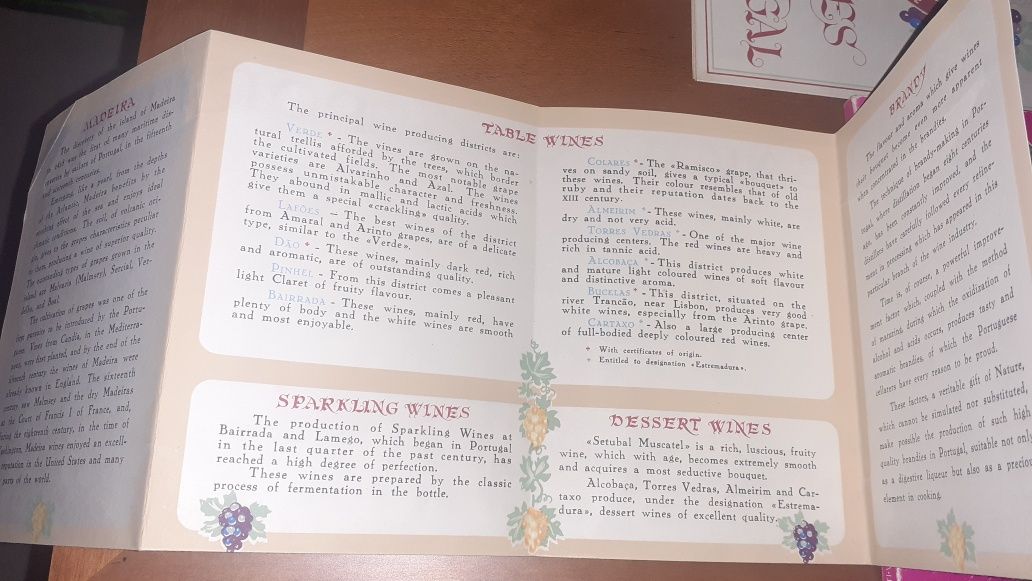 MADEIRA
The discovery of the island of Madeira
in 1418 was the first of many maritime dis-
coveries by sailors of Portugal, in the fifteenth
and sixteenth centuries.
Emerging, like a pearl, from the depths
of the Atlantic, Madeira benefits by the
soothing effect of the sea and enjoys ideal
climatic conditions. The soil, of volcanic ori-
gin, gives to the grapes characteristics peculiar
to them, producing a wine of superior quality.
The outstanding types of grapes grown in the
island are Malvazia (Malmsey), Sercial, Ver-
delho, and Boal.
The cultivation of grapes was one of the
first pursuits to be introduced by the Portu-
guese. Vines from Candia, in the Mediterra-
nean, were first planted, and by the end of the
fifteenth century the wines of Madeira were
already known in England. The sixteenth
century saw Malmsey and the dry Madeiras
at the Court of Francis I of France, and,
during the eighteenth century, in the time of
Wellington, Madeira wines enjoyed an excell-
reputation in the United States and many
parts of the world.
TABLE WINES
The principal wine producing districts are:
VERDE * - The vines are grown on the na-
tural trellis afforded by the trees, which border
the cultivated fields. The most notable grape
varieties are Alvarinho and Azal. The wines
possess unmistakable character and freshness.
They abound in mallic and lactic acids which
give them a special «crackling» quality.
LAFÕES - The best wines of the district
from Amaral and Arinto grapes, are of a delicate
type, similar to the «Verde».
DÃO * - These wines, mainly dark red, rich
and aromatic, are of outstanding quality.
PINHEL - From this district comes a pleasant
light Claret of fruity flavour.
BAIRRADA - These wines, mainly red, have
plenty of body and the white wines are smooth
and most enjoyable.
COLARES * - The «Ramisco» grape, that thri-
ves on sandy soil, gives a typical «bouquet» to
these wines. Their colour resembles that of old
ruby and their reputation dates back to the
XIII century.
ALMEIRIM ° - These wines, mainly white, are
dry and not very acid.
TORRES VEDRAS ° - One of the major wine
producing centers. The red wines are heavy and
rich in tannic acid.
ALCOBAÇA ° - This district produces white
and mature light coloured wines of soft flavour
and distinctive aroma.
BUCELAS * - This district, situated on the
river Trancão, near Lisbon, produces very good
white wines, especially from the Arinto grape.
CARTAXO ° - Also a large producing center
of full-bodied deeply coloured red wines.
* With certificates of origin.
° Entitled to designation «Estremadura».
SPARKLING WINES
The production of Sparkling Wines at
Bairrada and Lamego, which began in Portugal
in the last quarter of the past century, has
reached a high degree of perfection.
These wines are prepared by the classic
process of fermentation in the bottle.
DESSERT WINES
«Setubal Muscatel» is a rich, luscious, fruity
wine, which with age, becomes extremely smooth
and acquires a most seductive bouquet.
Alcobaça, Torres Vedras, Almeirim and Car-
taxo produce, under the designation «Estrema-
dura», dessert wines of excellent quality.
BRANDY
The flavour and aroma which give wines
their character become even more apparent
when concentrated in the brandies.
The technique of brandy-making in Por-
tugal, where distillation began eight centuries
ago, has been constantly improved, and the
distillers have carefully followed every refine-
ment in processing which has appeared in this
particular branch of the wine industry.
Time is, of course, a powerful improve-
ment factor which, coupled with the method
of maturing during which the oxidization of
alcohol and acids occurs, produces tasty and
aromatic brandies, of which the Portuguese
cellarers have every reason to be proud.
These factors, a veritable gift of Nature,
which cannot be simulated nor substituted,
make possible the production of such high
quality brandies in Portugal, suitable not only
as a digestive liqueur but also as a precious
element in cooking.